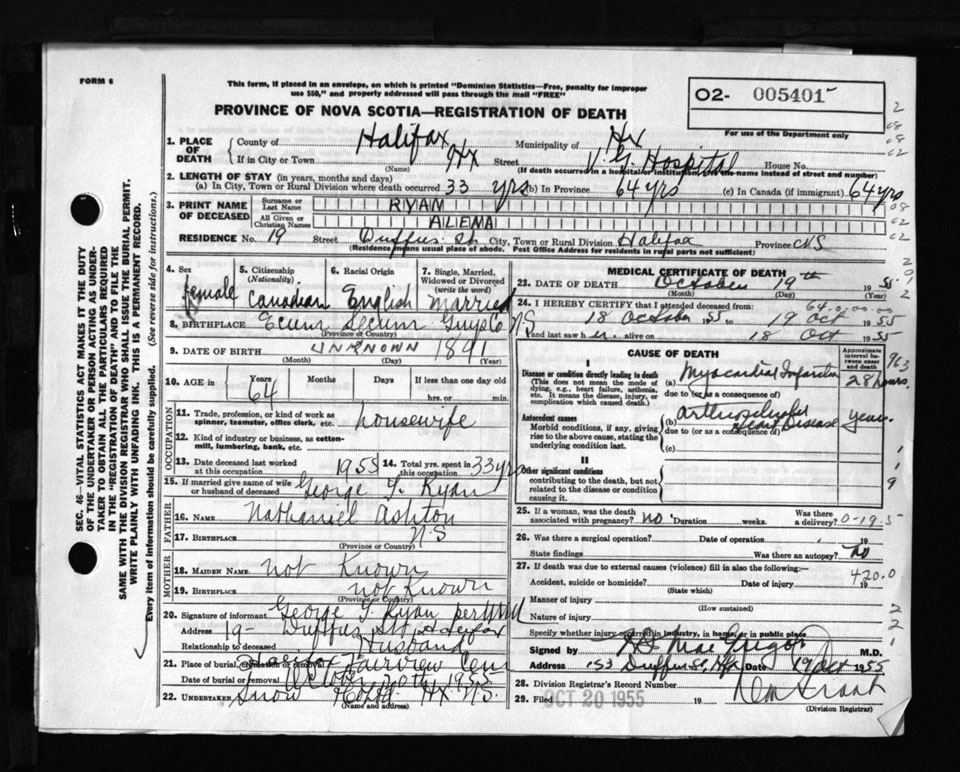 FORM 6
This form, if placed in an envelope, on which is printed "Dominion Statistics—Free, penalty for improper
use $50," and properly addressed will pass through the mail "FREE"
PROVINCE OF NOVA SCOTIA—REGISTRATION OF DEATH
O2- 005401
For use of the Department only
SEC. 46—VITAL STATISTICS ACT MAKES IT THE DUTY
OF THE UNDERTAKER OR PERSON ACTING AS UNDER-
TAKER TO OBTAIN ALL THE PARTICULARS REQUIRED
IN THE "REGISTRATION OF DEATH" AND TO FILE THE
SAME WITH THE DIVISION REGISTRAR WHO SHALL ISSUE THE BURIAL PERMIT.
WRITE PLAINLY WITH UNFADING INK. THIS IS A PERMANENT RECORD.
Every item of information should be carefully supplied. (See reverse side for instructions.)
1. PLACE OF DEATH
County of Halifax Municipality of Hx
If in City or Town Hx Street V. G. Hospital House No.
(Name) (If death occurred in a hospital or institution, give name instead of street and number)
2. LENGTH OF STAY (in years, months and days)
(a) In City, Town or Rural Division where death occurred 33 yrs (b) In Province 64 yrs (c) In Canada (if immigrant) 64 yrs
3. PRINT NAME OF DECEASED
Surname or Last Name RYAN
All Given or Christian Names ALEMA
RESIDENCE No. 19 Street Duffus St. City, Town or Rural Division Halifax Province NS
(Residence means usual place of abode. Post Office Address for residents in rural parts not sufficient)
4. Sex female
5. Citizenship (Nationality) Canadian
6. Racial Origin English
7. Single, Married, Widowed or Divorced (write the word) Married
8. BIRTHPLACE Ecum Secum Guysco NS
9. DATE OF BIRTH UNKNOWN 1891
(Month) (Day) (Year)
10. AGE in Years 64 Months Days If less than one day old
hrs. or min.
OCCUPATION
11. Trade, profession, or kind of work as
spinner, teamster, office clerk, etc. housewife
12. Kind of industry or business, as cotton-
mill, lumbering, bank, etc.
13. Date deceased last worked
at this occupation 1955
14. Total yrs. spent in
this occupation 33 yrs
15. If married give name of wife
or husband of deceased George T. Ryan
FATHER
16. NAME Nathaniel Ashton
17. BIRTHPLACE N.S
(Province or Country)
MOTHER
18. MAIDEN NAME not Known
19. BIRTHPLACE not Known
(Province or Country)
20. Signature of informant George T. Ryan per
Address 19- Duffus St Halifax
Relationship to deceased Husband
21. Place of burial, cremation or removal Halifax Fairview Cem
Date of burial or removal October 20th 1955
22. UNDERTAKER Snow Hx N.S.
(Name and address)
MEDICAL CERTIFICATE OF DEATH
23. DATE OF DEATH October 19th 1955
(Month) (Day) (Year)
24. I HEREBY CERTIFY that I attended deceased from:
18 October 1955 to 19 Oct 1955
and last saw her alive on 18 Oct 1955
CAUSE OF DEATH
Approximate interval between onset and death
I
Disease or condition directly leading to death
(This does not mean the mode of
dying, e.g., heart failure, asthenia,
etc. It means the disease, injury, or
complication which caused death.)
(a) Myocardial Infarction 28 hours.
due to (or as a consequence of)
Antecedent causes
Morbid conditions, if any, giving
rise to the above cause, stating the
underlying condition last.
(b) Heart Disease years
due to (or as a consequence of)
(c)
II
Other significant conditions
contributing to the death, but not
related to the disease or condition
causing it.
25. If a woman, was the death
associated with pregnancy? no Duration weeks. Was there
a delivery? 0-19.5
26. Was there a surgical operation? Date of operation 19
State findings Was there an autopsy? no
27. If death was due to external causes (violence) fill in also the following:— 420.0
Accident, suicide or homicide? Date of injury 19
(State which)
Manner of injury
(How sustained)
Nature of injury
Specify whether injury occurred in industry, in home, or in public place
Signed by MacGregor M.D.
Address 153 Duffus St, Hx Date 19 Oct 1955
28. Division Registrar's Record Number
29. Filed OCT 20 1955 19
(Division Registrar)